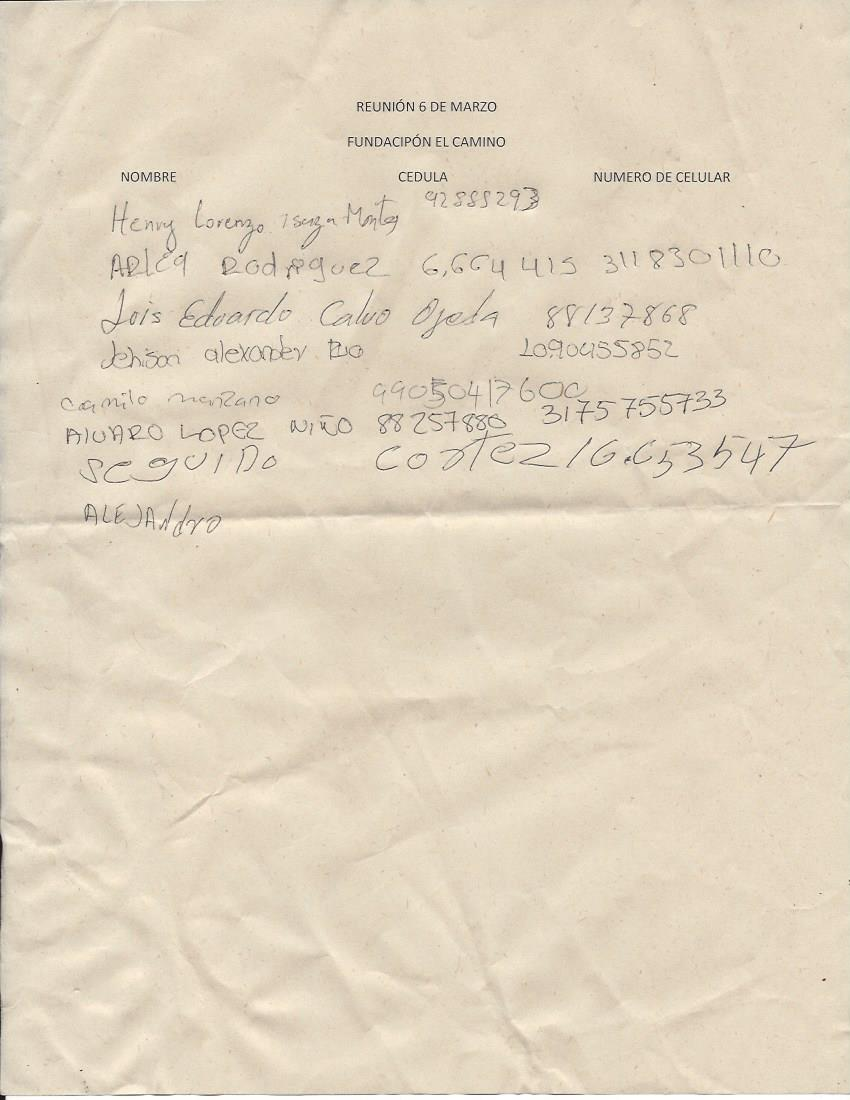 REUNIÓN 6 DE MARZO
FUNDACIPÓN EL CAMINO
NOMBRE CEDULA NUMERO DE CELULAR
Henry Lorenzo Isaza Montes 92888293
ARLEY Rodriguez 6,664 415 3118301110
Luis Eduardo Calvo Ojeda 88137868
Jehison alexander 1090455852
camilo manzano 99050417600
AlVARO LOPEZ NIÑO 88257880 3175755733
SEGUIDO cortez 16.653547
ALEJAndro